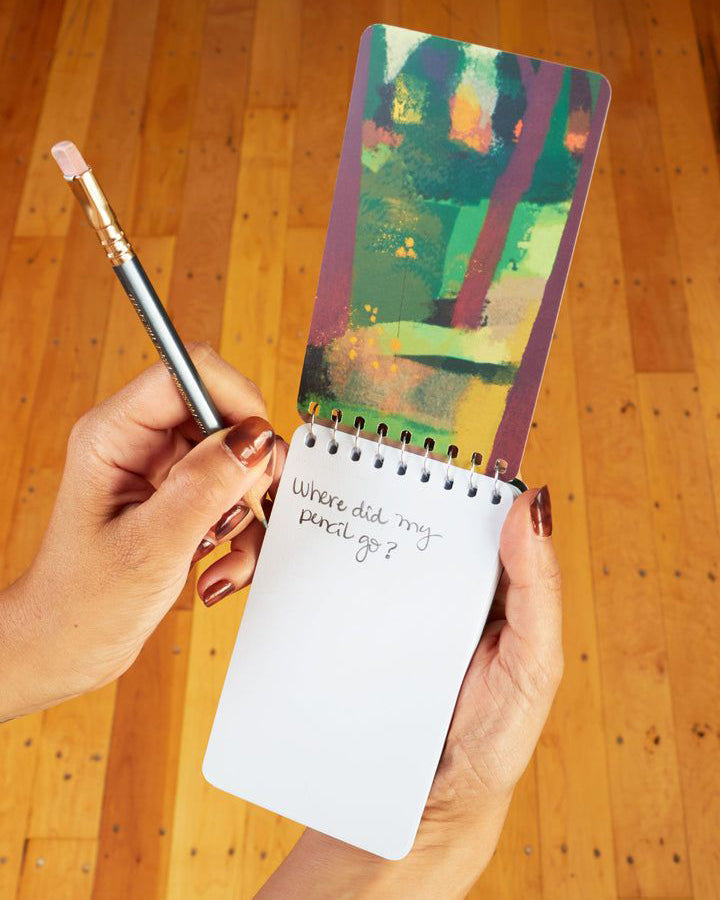 Where did my
pencil go?